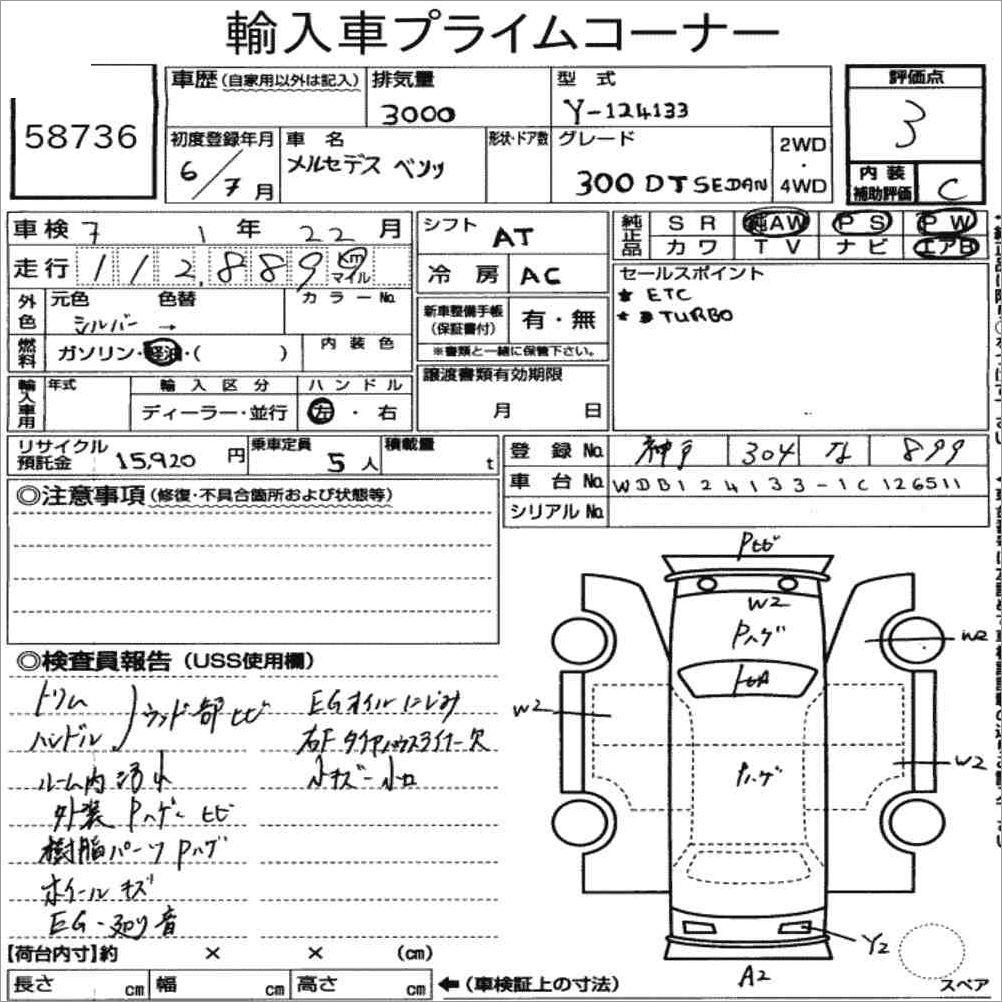 輸入車プライムコーナー
58736
車歴(自家用以外は記入) 排気量 型式
3000 Y-124133
評価点
3
初度登録年月 車名 形状・ドア数 グレード 2WD・4WD
6/7月 メルセデス ベンツ 300DT SEDAN
内装補助評価 C
車検 7年 1月 22
走行 112,889 Km マイル
シフト AT
冷房 AC
純正品 SR 純AW PS PW
カワ TV ナビ エアB
セールスポイント
★ ETC
★ DTURBO
外色 元色 色替 カラーNo.
シルバー →
内装色
燃料 ガソリン・軽油・( )
新車整備手帳(保証書付) 有・無
※書類と一緒に保管下さい。
譲渡書類有効期限
月 日
輸入車用 年式 輸入区分 ハンドル
ディーラー・並行 左・右
リサイクル預託金 15,920円 乗車定員 5人 積載量 t
登録No. 神戸 304 な 899
車台No. WDB124133-1C126511
シリアルNo.
◎注意事項(修復・不具合箇所および状態等)
◎検査員報告(USS使用欄)
トリム
ハンドル
ウッド部ヒビ
ルーム内汚れ
外装 Pハゲ ヒビ
樹脂パーツPハゲ
ホイールキズ
EG-廻り音
EGオイルにじみ
右Fタイヤハウスライナー欠
小キズ-小凹
Pヒビ
W2
Pハゲ
W2
W2
W2
Pハゲ
Y2
A2
スペア
【荷台内寸】約 × × (cm)
長さ cm 幅 cm 高さ cm ←(車検証上の寸法)